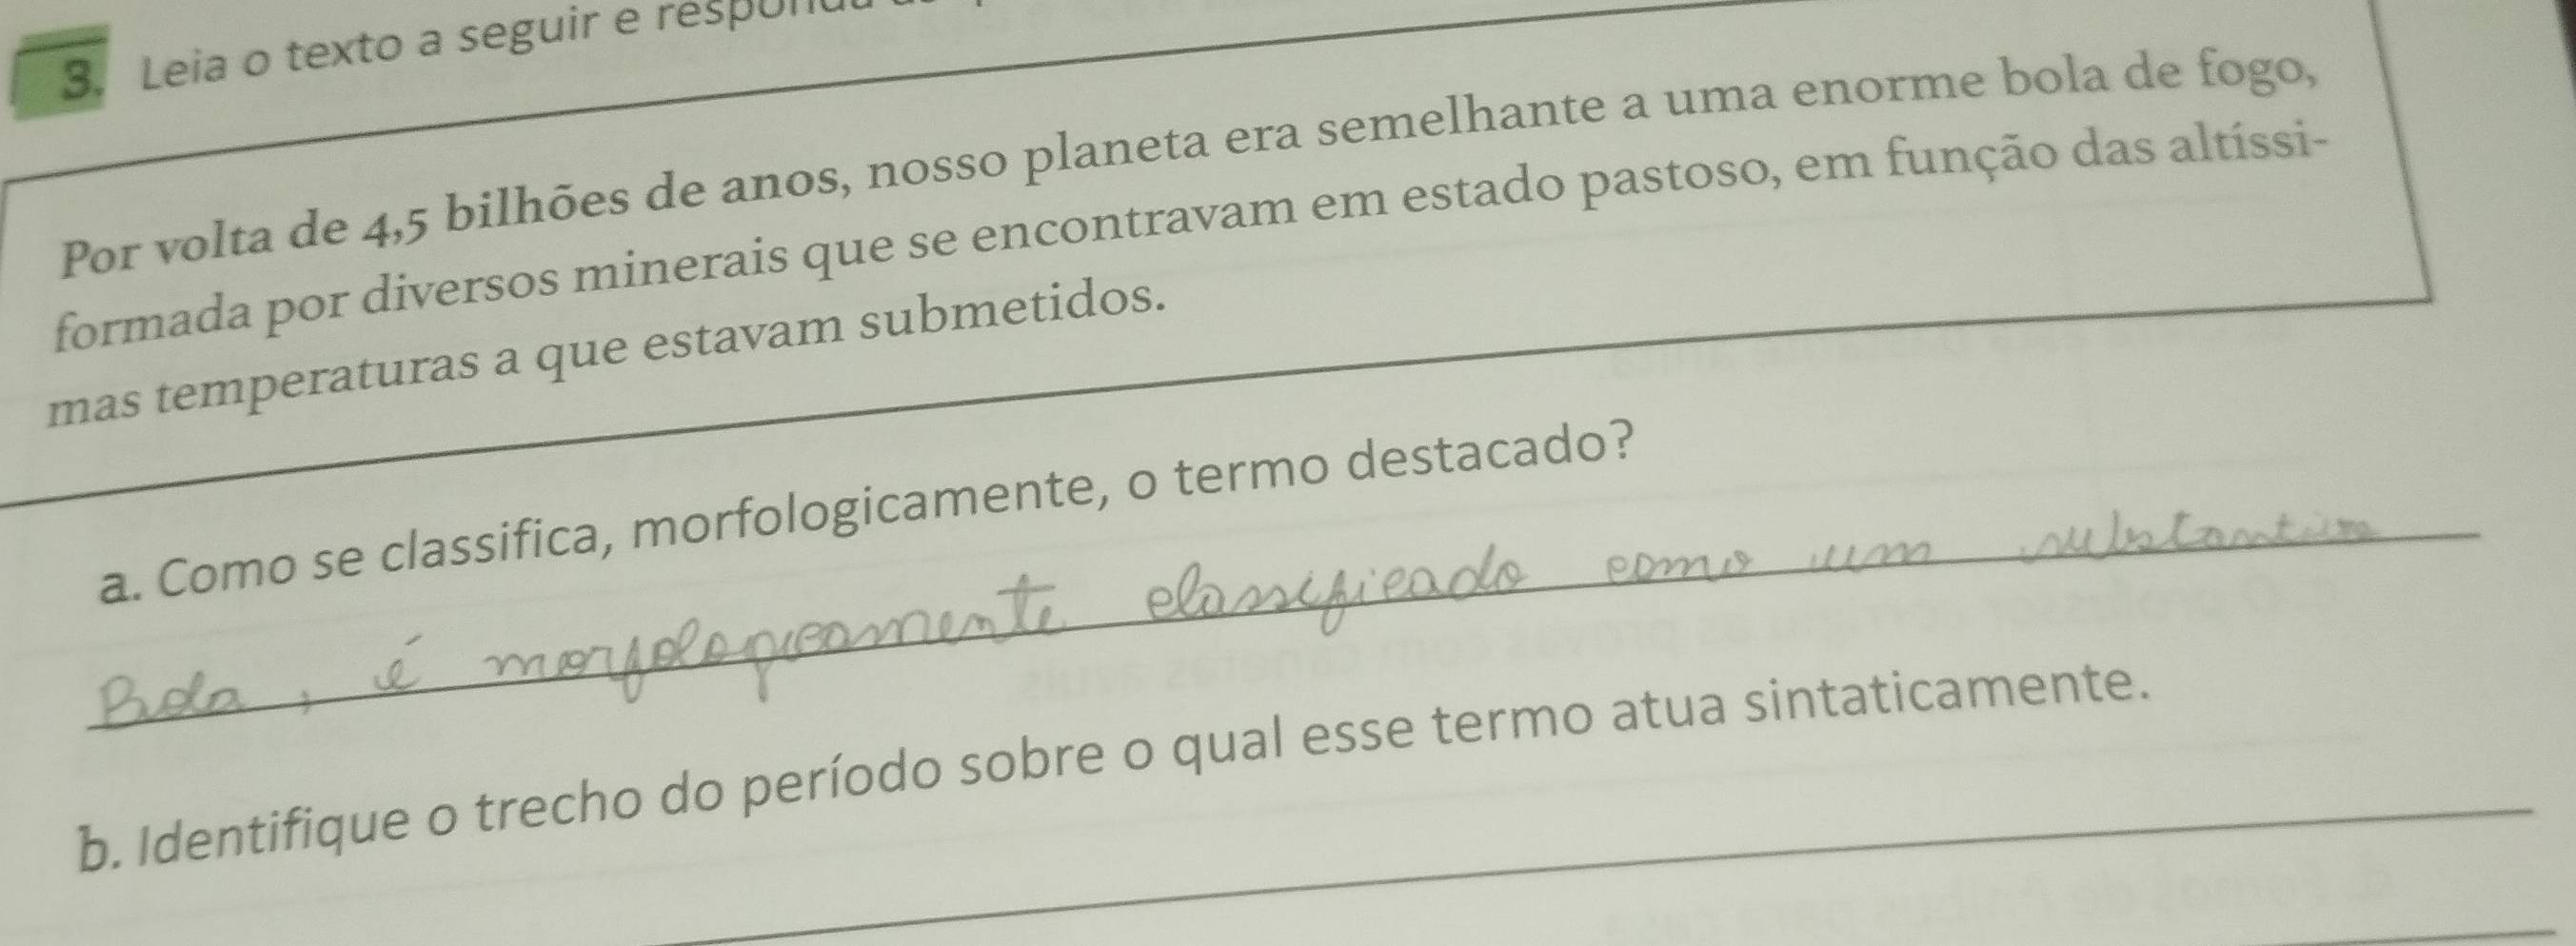 3. Leia o texto a seguir e
Por volta de 4,5 bilhões de anos, nosso planeta era semelhante a uma enorme bola de fogo,
formada por diversos minerais que se encontravam em estado pastoso, em função das altíssi-
mas temperaturas a que estavam submetidos.
a. Como se classifica, morfologicamente, o termo destacado?
Bola, é morfologicamente classificado como um substantivo
b. Identifique o trecho do período sobre o qual esse termo atua sintaticamente.